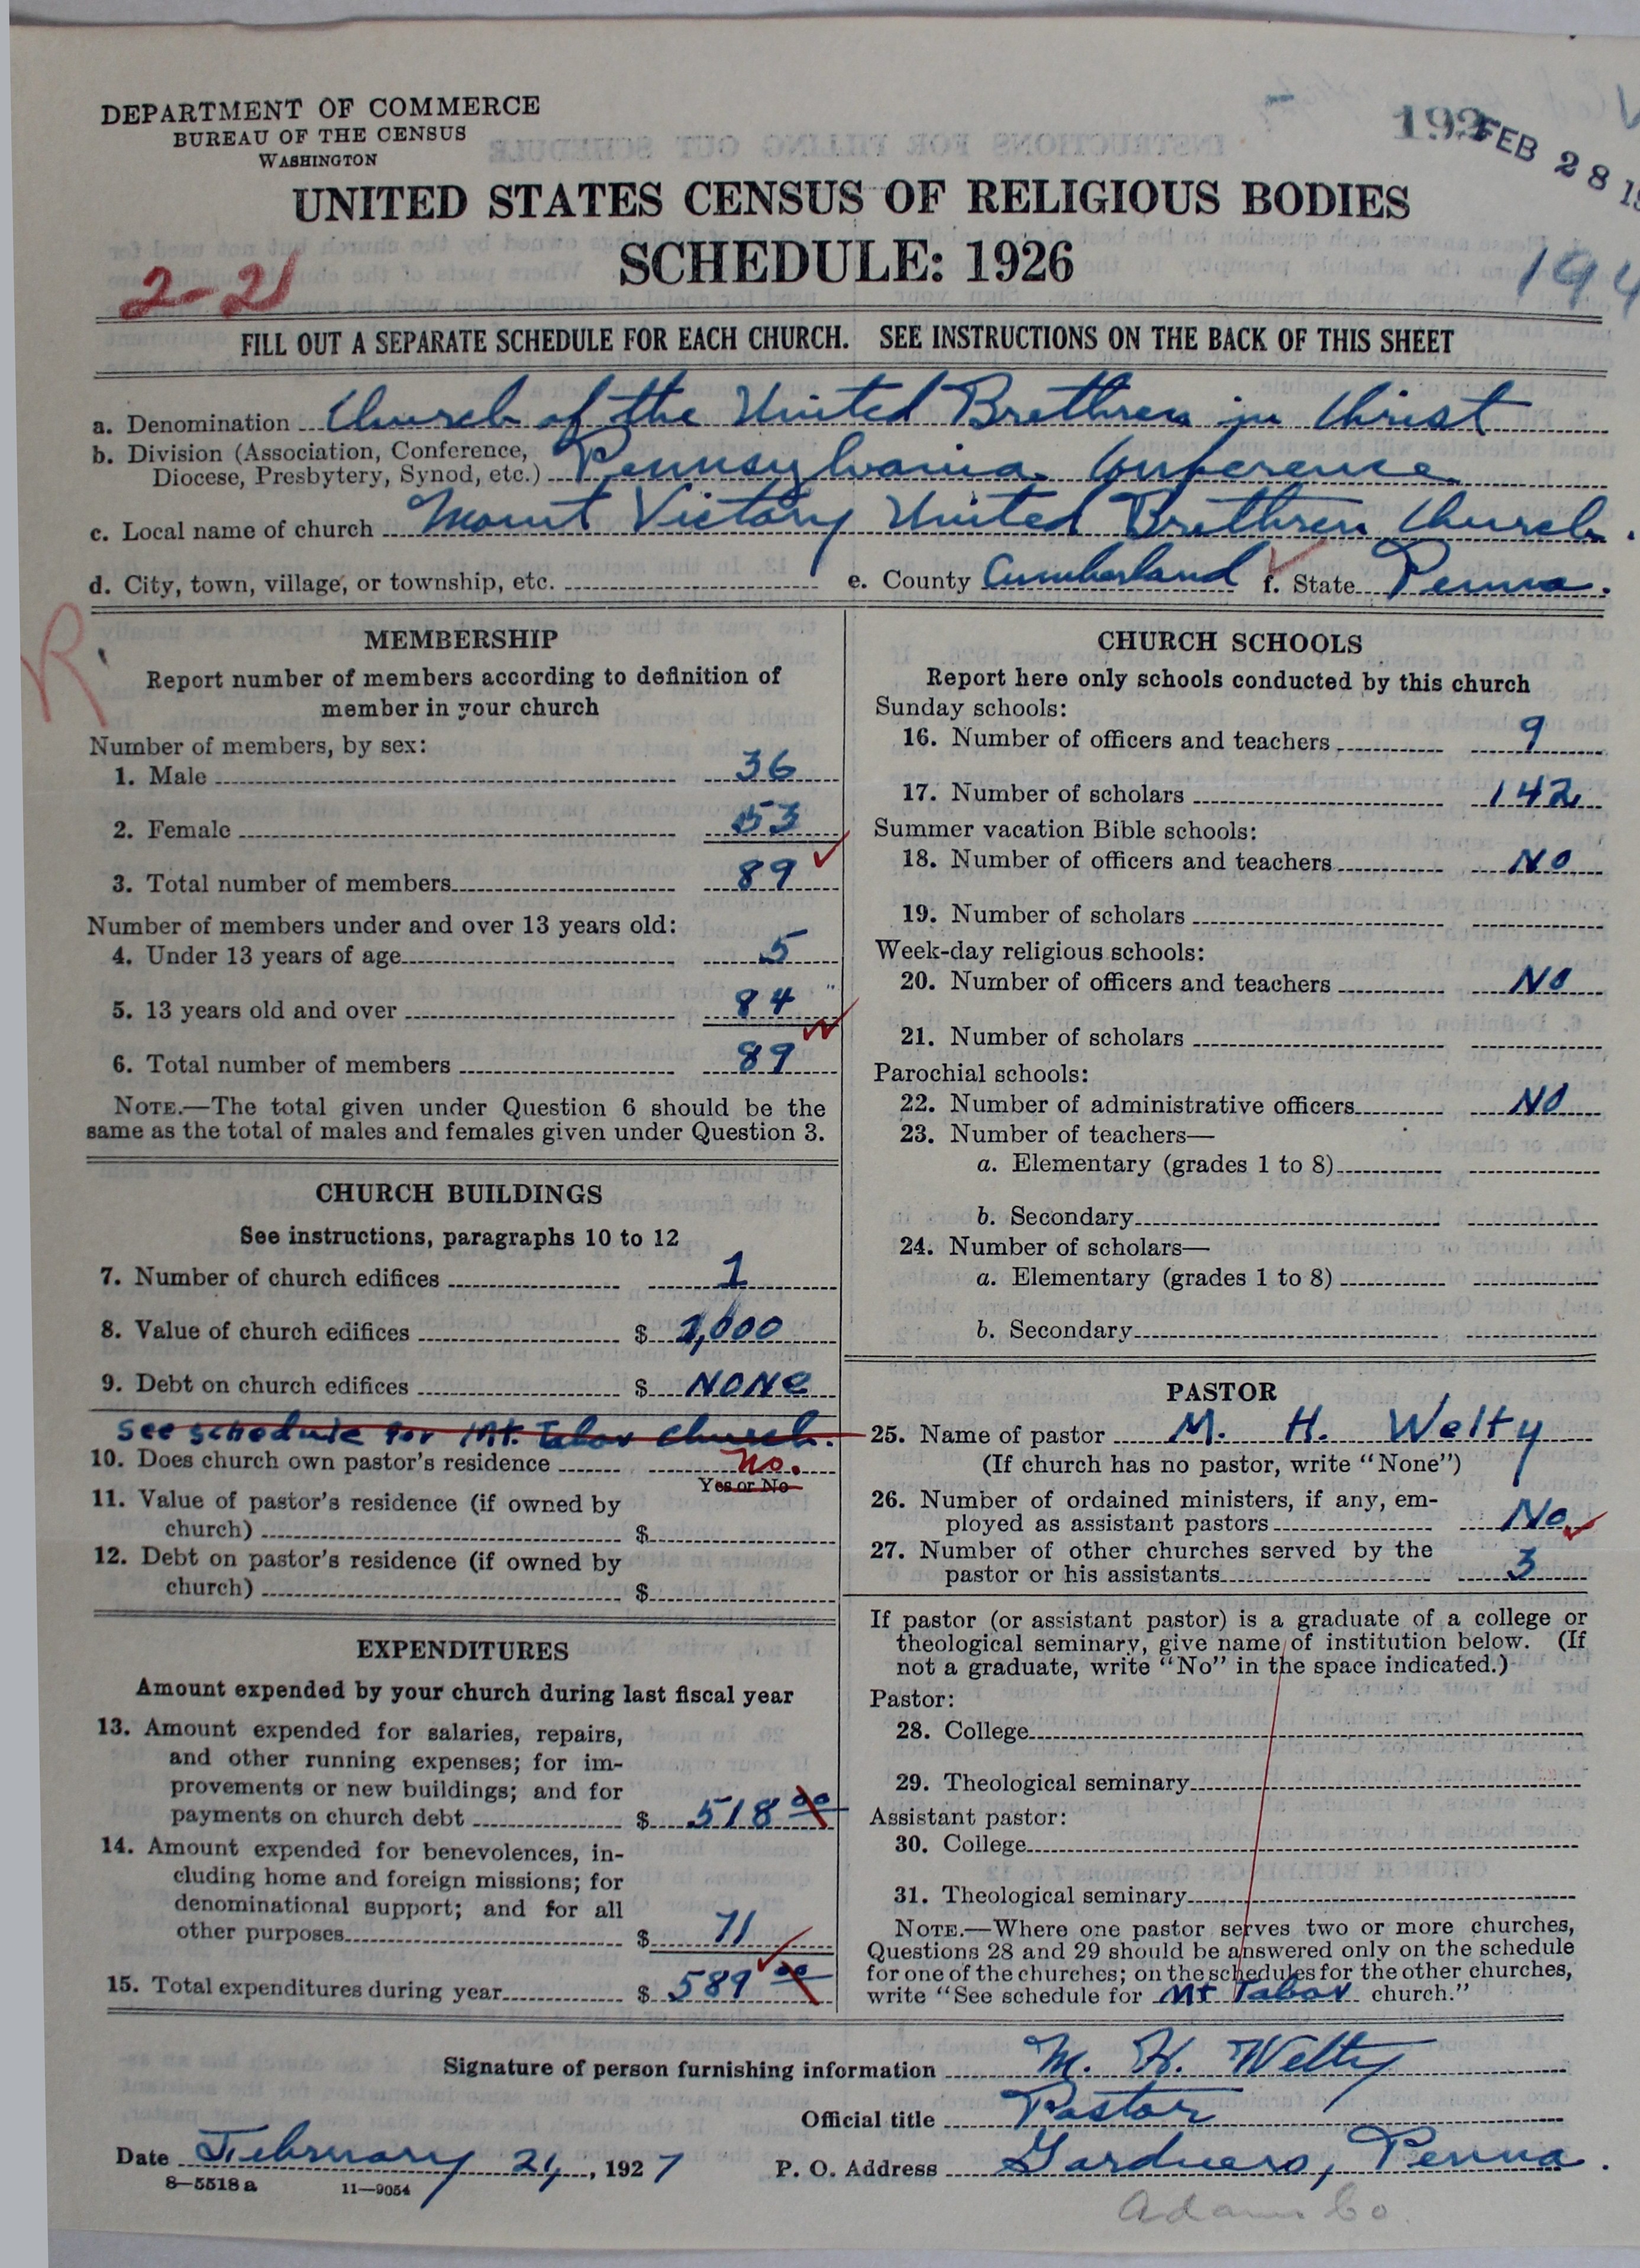 DEPARTMENT OF COMMERCE
BUREAU OF THE CENSUS
WASHINGTON
FEB 28 19
UNITED STATES CENSUS OF RELIGIOUS BODIES
SCHEDULE: 1926
2-21
194
FILL OUT A SEPARATE SCHEDULE FOR EACH CHURCH. SEE INSTRUCTIONS ON THE BACK OF THIS SHEET
a. Denomination Church of the United Brethren in Christ
b. Division (Association, Conference,
Diocese, Presbytery, Synod, etc.) Pennsylvania Conference
c. Local name of church Mount Victory United Brethren Church.
d. City, town, village, or township, etc. e. County Cumberland f. State Penna.
R
MEMBERSHIP
Report number of members according to definition of
member in your church
Number of members, by sex:
1. Male 36
2. Female 53
3. Total number of members 89
Number of members under and over 13 years old:
4. Under 13 years of age 5
5. 13 years old and over 84
6. Total number of members 89
NOTE.—The total given under Question 6 should be the
same as the total of males and females given under Question 3.
CHURCH BUILDINGS
See instructions, paragraphs 10 to 12
7. Number of church edifices 1
8. Value of church edifices $ 2,000
9. Debt on church edifices $ NONe
See schedule for Mt. Tabor church.
10. Does church own pastor's residence No.
Yes or No
11. Value of pastor's residence (if owned by
church) $
12. Debt on pastor's residence (if owned by
church) $
EXPENDITURES
Amount expended by your church during last fiscal year
13. Amount expended for salaries, repairs,
and other running expenses; for im-
provements or new buildings; and for
payments on church debt $ 518 00
14. Amount expended for benevolences, in-
cluding home and foreign missions; for
denominational support; and for all
other purposes $ 71
15. Total expenditures during year $ 589 00
CHURCH SCHOOLS
Report here only schools conducted by this church
Sunday schools:
16. Number of officers and teachers 9
17. Number of scholars 142
Summer vacation Bible schools:
18. Number of officers and teachers NO
19. Number of scholars
Week-day religious schools:
20. Number of officers and teachers NO
21. Number of scholars
Parochial schools:
22. Number of administrative officers NO
23. Number of teachers—
a. Elementary (grades 1 to 8)
b. Secondary
24. Number of scholars—
a. Elementary (grades 1 to 8)
b. Secondary
PASTOR
25. Name of pastor M. H. Welty
(If church has no pastor, write "None")
26. Number of ordained ministers, if any, em-
ployed as assistant pastors No
27. Number of other churches served by the
pastor or his assistants 3
If pastor (or assistant pastor) is a graduate of a college or
theological seminary, give name of institution below. (If
not a graduate, write "No" in the space indicated.)
Pastor:
28. College
29. Theological seminary
Assistant pastor:
30. College
31. Theological seminary
NOTE.—Where one pastor serves two or more churches,
Questions 28 and 29 should be answered only on the schedule
for one of the churches; on the schedules for the other churches,
write "See schedule for Mt Tabor church."
Signature of person furnishing information M. H. Welty
Official title Pastor
Date February 21, 1927 P. O. Address Gardners, Penna.
8—5518a 11—9054
Adams Co.